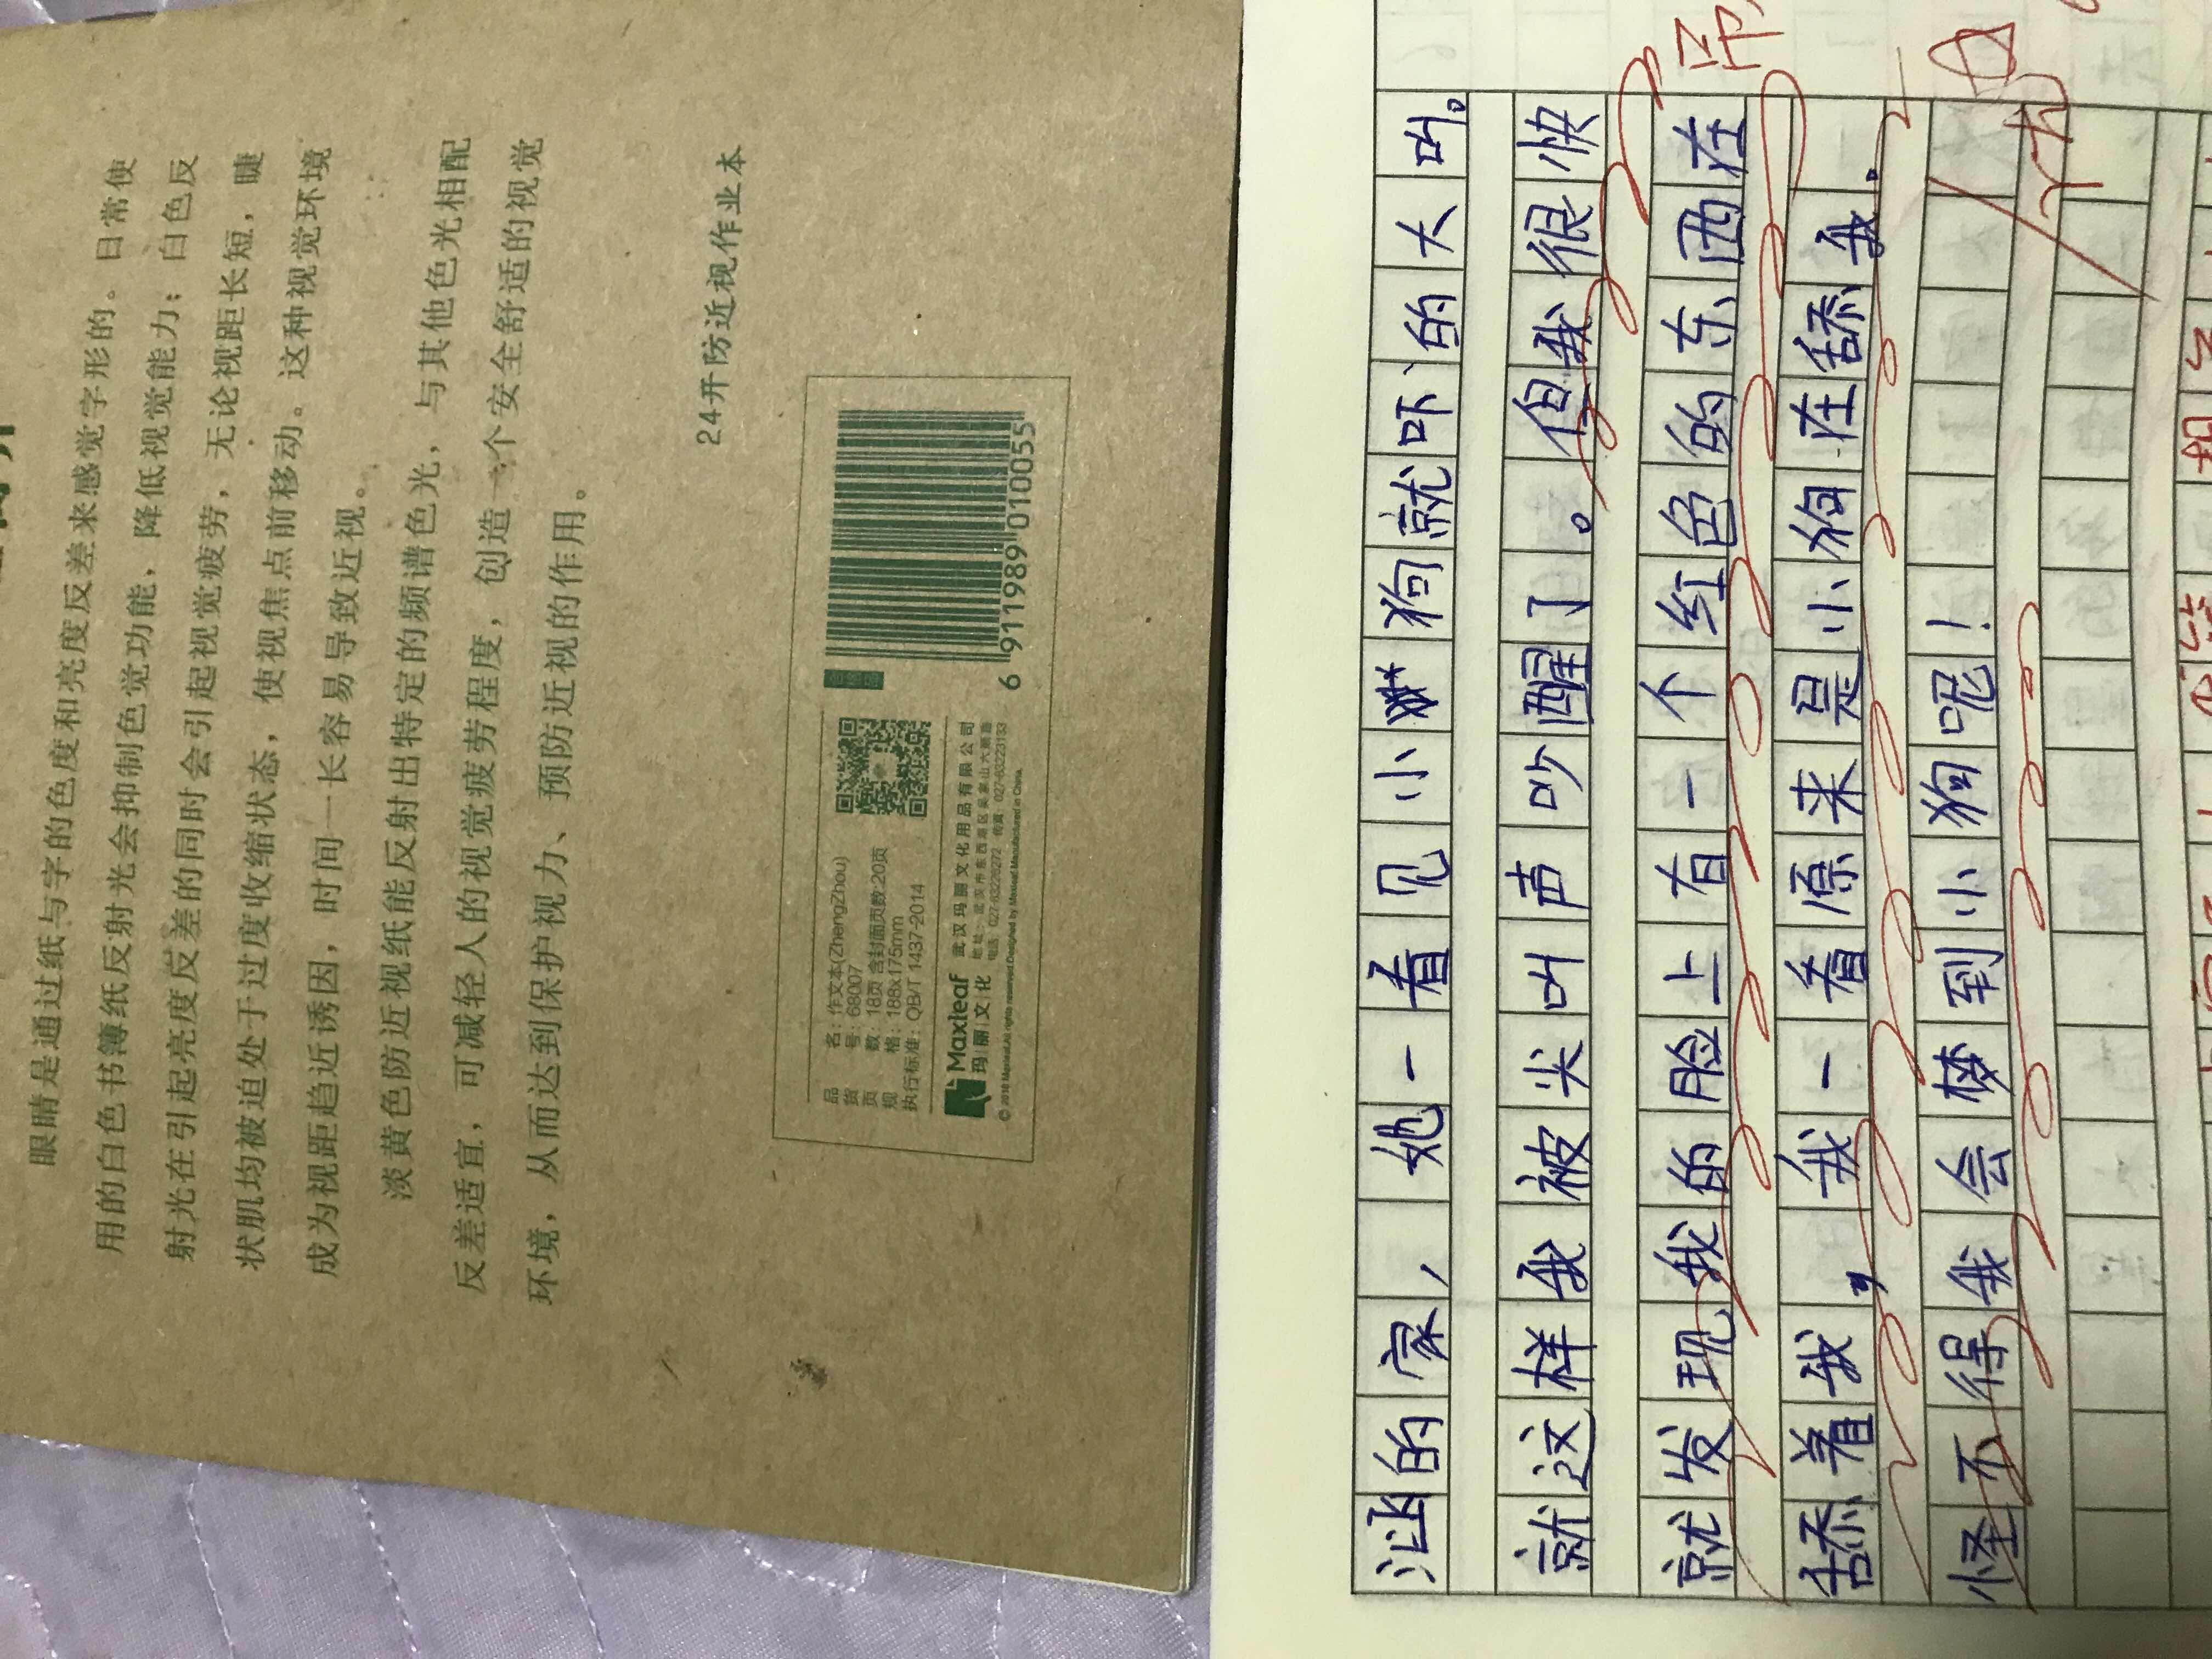 眼睛是通过纸与字的色度和亮度反差来感觉字形的。日常使
用的白色书簿纸反射光会抑制色觉功能，降低视觉能力；白色反
射光在引起亮度反差的同时会引起视觉疲劳，无论视距长短，睫
状肌均被迫处于过度收缩状态，使视焦点前移动。这种视觉环境
成为视距趋近诱因，时间一长容易导致近视。
淡黄色防近视纸能反射出特定的频谱色光，与其他色光相配
反差适宜，可减轻人的视觉疲劳程度，创造一个安全舒适的视觉
环境，从而达到保护视力、预防近视的作用。
24开防近视作业本
品 名：作文本(ZhengZhou)
货 号：68007
页 数：18页 含封面页数:20页
规 格：188x175mm
执行标准：QB/T 1437-2014
Maxleaf 武汉玛丽文化用品有限公司
玛丽文化
6 911989 010055
的家，她一看见小狗就吓的大叫。
就这样我被尖叫声吵醒了。但我很快
就发现我的脸上有一个红色的东西在
舔着我，我一看原来是小狗在舔我。
怪不得我会梦到小狗呢！